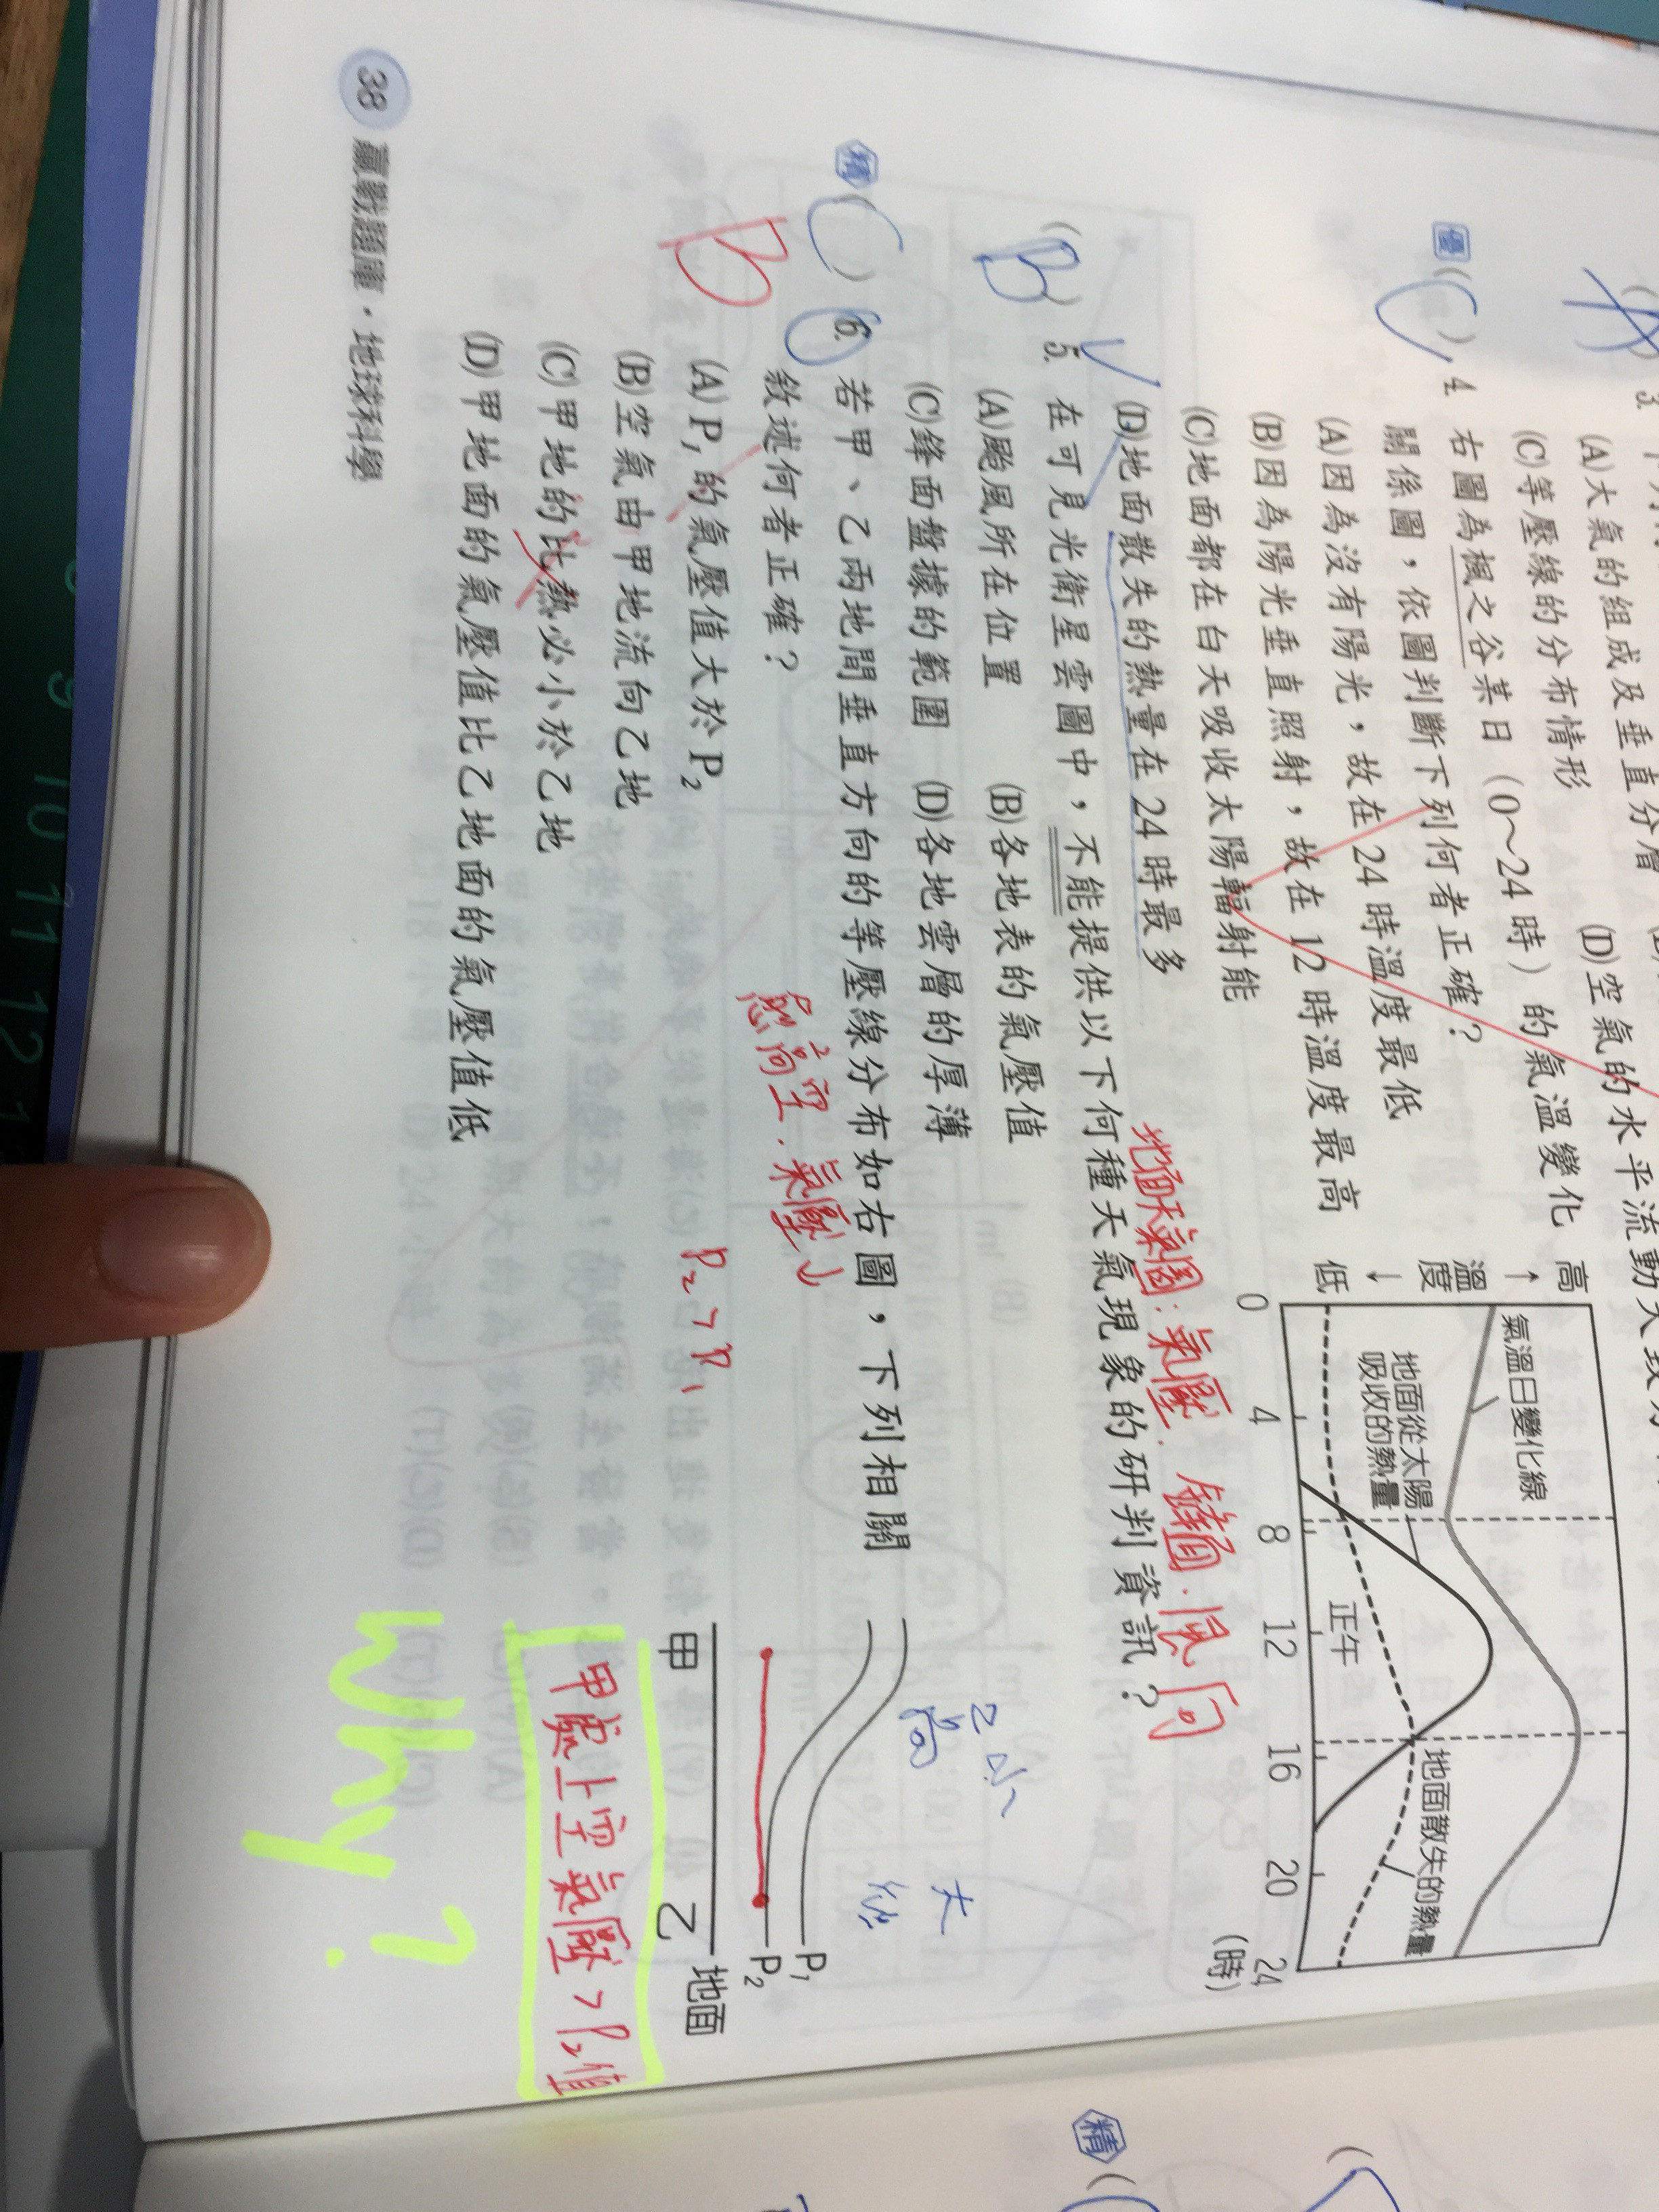 (A)大氣的組成及垂直分層
(C)等壓線的分布情形
(D)空氣的水平流動大致
優(C)4. 右圖為楓之谷某日（0～24時）的氣溫變化
關係圖，依圖判斷下列何者正確？
(A)因為沒有陽光，故在24時溫度最低
(B)因為陽光垂直照射，故在12時溫度最高
(C)地面都在白天吸收太陽輻射能
(D)地面散失的熱量在24時最多
高
↑
溫度
↓
低
氣溫日變化線
地面從太陽
吸收的熱量
正午
地面散失的熱量
0 4 8 12 16 20 24
(時)
地面天氣圖：氣壓．鋒面．風向
(B)5. 在可見光衛星雲圖中，不能提供以下何種天氣現象的研判資訊？
(A)颱風所在位置 (B)各地表的氣壓值
(C)鋒面盤據的範圍 (D)各地雲層的厚薄
精(C)6. 若甲、乙兩地間垂直方向的等壓線分布如右圖，下列相關
敘述何者正確？
B
愈高空．氣壓↓
(A)P₁的氣壓值大於P₂
P₂>P₁
(B)空氣由甲地流向乙地
(C)甲地的比熱必小於乙地
(D)甲地面的氣壓值比乙地面的氣壓值低
小
大
P₁
P₂
甲 乙 地面
甲處上空氣壓>P₂值
Why?
38 贏戰題庫・地球科學
精
9 10 11 12